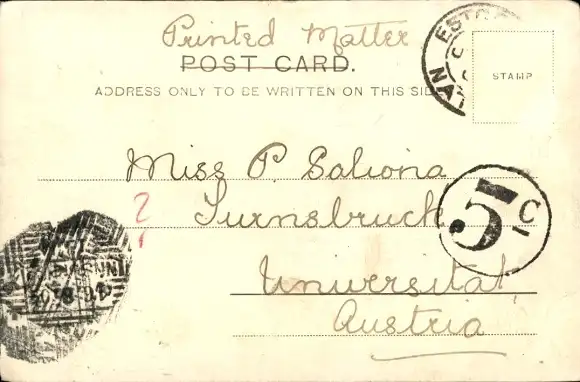 Printed Matter
POST CARD.
ADDRESS ONLY TO BE WRITTEN ON THIS SIDE
STAMP
Miss P. Saliona
Turnsbruck
Universitat,
Austria
5 c
2